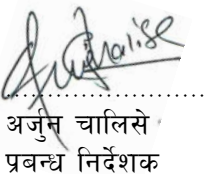 अर्जुन चालिसे
प्रबन्ध निर्देशक